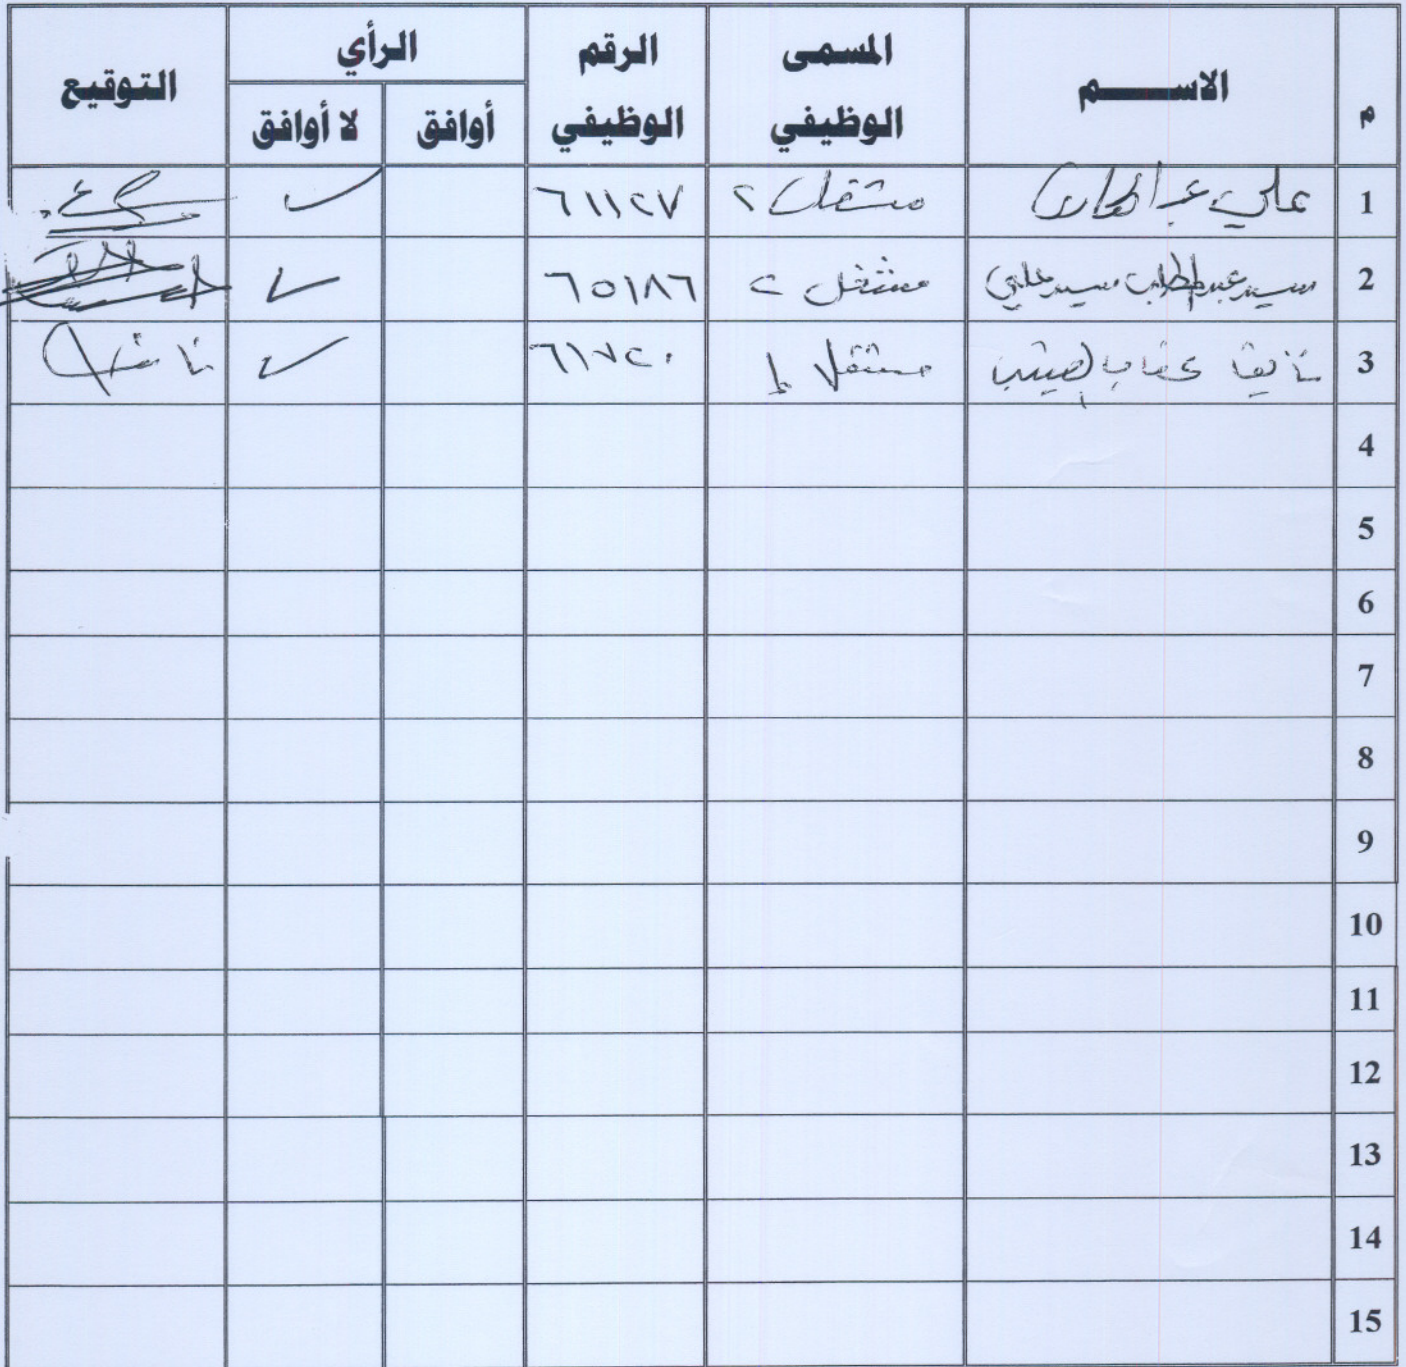 م الاســـــم المسمى الوظيفي الرقم الوظيفي الرأي التوقيع
أوافق لا أوافق
1 علي عبد مشغل ٢ ٦١١٢٧
2 سيد عبدالمطلب سيد علي مشغل ٢ ٦٥١٨٦
3 نايف عقاب مشغل ١ ٦١٧٢٠
4
5
6
7
8
9
10
11
12
13
14
15